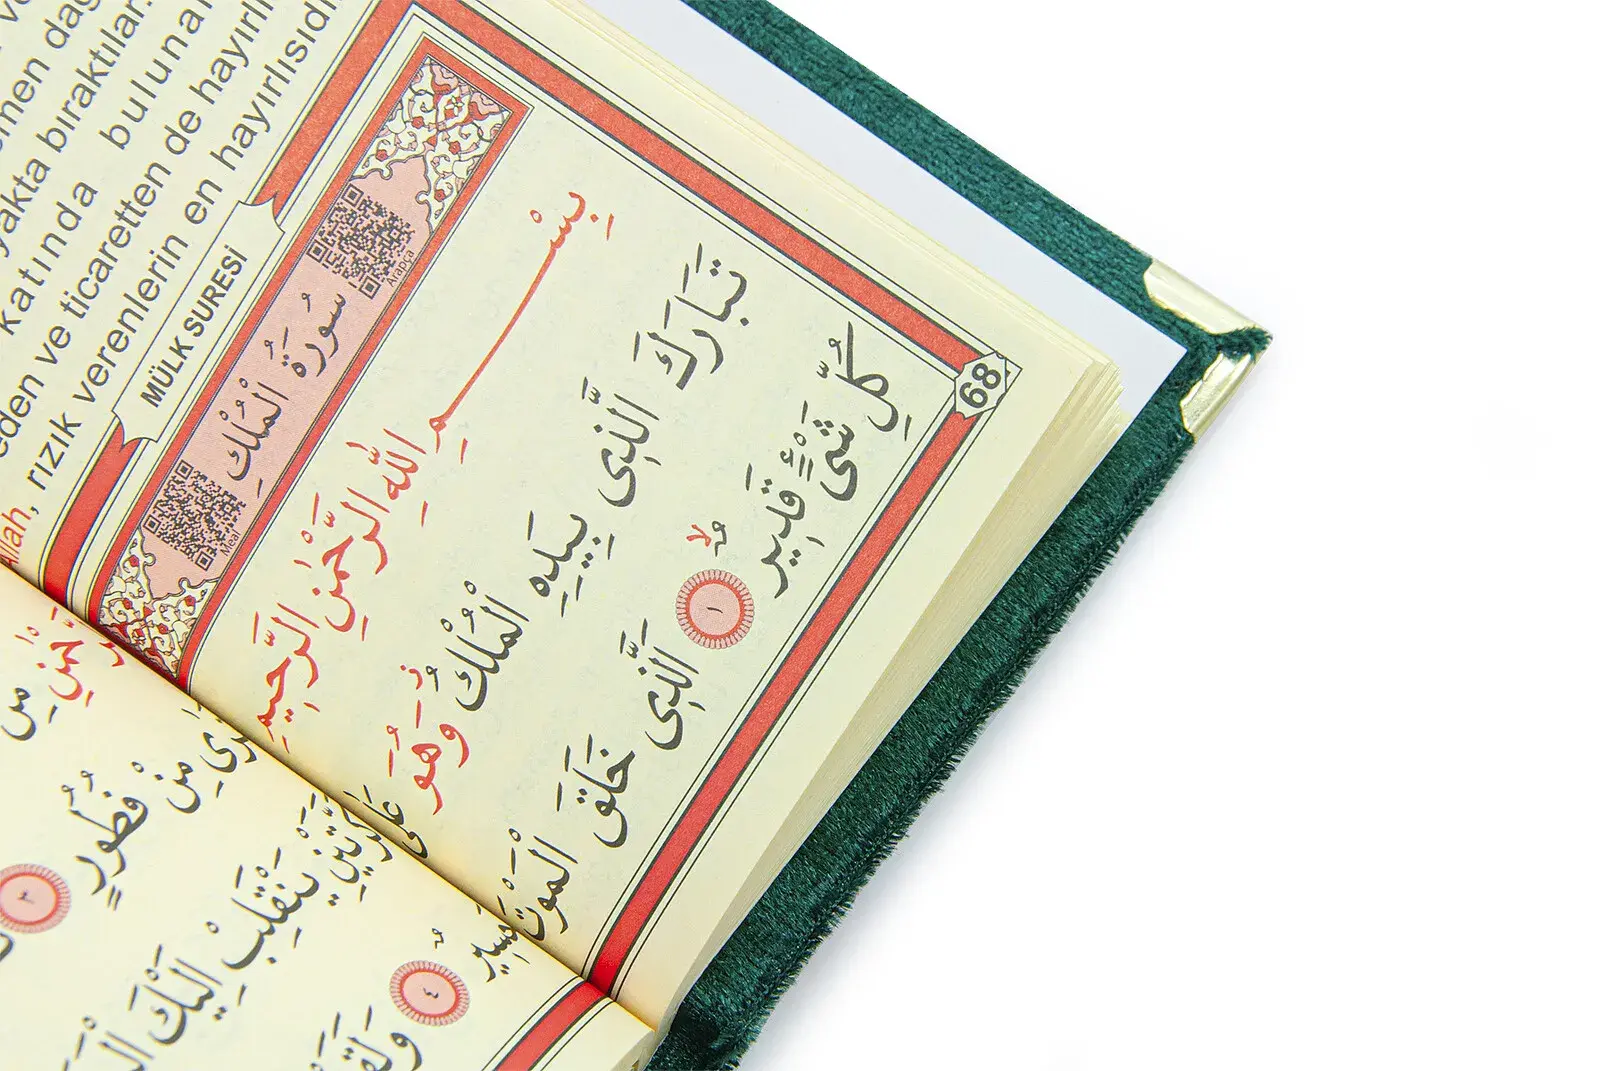 yakta bıraktılar.
katında buluna
eden ve ticaretten de hayırlı
Allah, rızık verenlerin en hayırlısıdı
MÜLK SURESİ
سُورَةُ الْمُلْكِ
Arapça
Meal
68
بِسْمِ اللّٰهِ الرَّحْمٰنِ الرَّحِيمِ
تَبَارَكَ الَّذٖى بِيَدِهِ الْمُلْكُ وَهُوَ عَلٰى
كُلِّ شَىْءٍ قَدٖيرٌ ١ اَلَّذٖى خَلَقَ الْمَوْتَ
مِنْ
مِنْ فُطُورٍ ٣
يَنْقَلِبْ اِلَيْكَ
٤ وَلَقَ